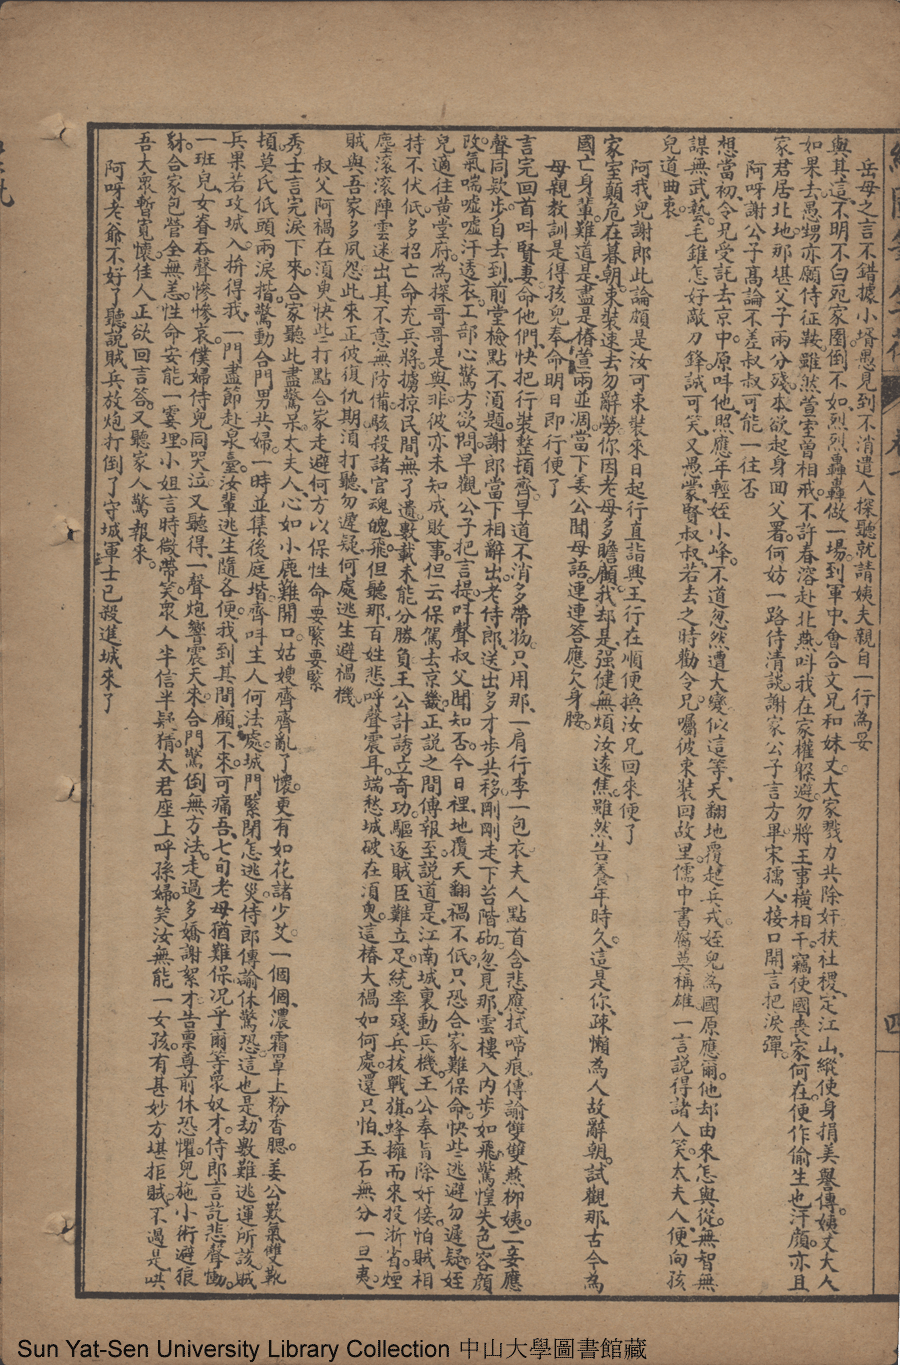 岳母之言不錯據小壻愚見到不消遣人探聽就請姨夫親自一行為妥
與其這不明不白宛家圈倒不如烈烈轟轟做一場到軍中會合文兄和妹丈大家戮力共除奸扶社稷定江山縱使身捐美譽傳姨丈大人
如果去愚甥亦願侍征鞍雖然萱堂曾相戒不許春溶赴北燕叫我在家權躲避勿將王事橫相干竊使國喪家何在便作偷生也汗顏亦且
家君居北地那堪父子兩分殘本欲起身回父署何妨一路侍清談謝家公子言方畢宋孺人接口開言把淚彈
阿呀謝公子高論不差叔叔可能一往否
想當初令兄受託去京中原叫他照應年輕姪小峰不道忽然遭大變似這等天翻地覆起兵戎姪兒為國原應爾他却由來怎與從無智無
謀無武藝毛錐怎好敵刀鋒誠可笑又愚蒙賢叔叔若去之時勸令兄囑彼束裝回故里儒中書腐莫稱雄一言說得諸人笑太夫人便向孩
兒道曲衷
阿我兒謝郎此論頗是汝可束裝來日起行直詣興王行在順便換汝兄回來便了
家室顛危在暮朝束裝速去勿辭勞你因老母多瞻顧我却是強健無煩汝遠焦雖然告養年時久這是你疎懶為人故辭朝試觀那古今為
國亡身輩難道是盡是椿萱兩並凋當下姜公聞母語連連答應欠身腰
母親教訓是得孩兒奉命明日即行便了
言完回首叫賢妻命他們快把行裝整頓齊早道不消多帶物只用那一肩行李一包衣夫人點首含悲應拭啼痕傳諭雙雙燕柳姨二妾應
聲同欵步自去到前堂檢點不須題謝郎當下相辭出老侍郎送出多才步共移剛剛走下苔階砌忽見那雲樓入內步如飛驚惶失色容顏
改氣喘噓噓汗透衣工部心驚方欲問早觀公子把言提叫聲叔父聞知否今日裡地覆天翻禍不低只恐合家難保命快些逃避勿遲疑姪
兒適往黃堂府為探哥哥是與非彼亦未知成敗事但云保駕去京畿正說之間傳報至說道是江南城裏動兵機王公奉旨除奸佞怕賊相
持不伏低多招亡命充兵將擄掠民間無了遺數載未能分勝負王公計誘立奇功驅逐賊臣難立足統率殘兵拔戰旗蜂擁而來投浙省煙
塵滾滾陣雲迷出其不意無防備駭殺諸官魂魄飛但聽那百姓悲呼聲震耳端愁城破在須臾這樁大禍如何處還只怕玉石無分一旦夷
賊與吾家多夙怨此來正彼復仇期須打聽勿遲疑何處逃生避禍機
叔父阿禍在須臾快些打點合家走避何方以保性命要緊要緊
秀士言完淚下來合家聽此盡驚呆太夫人心如小鹿難開口姑嫂齊齊亂了懷更有如花諸少艾一個個濃霜罩上粉杏腮姜公歎氣雙靴
頓莫氏低頭兩淚揩驚動合門男共婦一時並集後庭堦齊叫主人何法處城門緊閉怎逃災侍郎傳諭休驚恐這也是劫數難逃運所該賊
兵果若攻城入拚得我一門盡節赴泉臺汝輩逃生隨各便我到其間顧不來可痛吾七旬老母猶難保况乎爾等衆奴才侍郎言訖悲聲慟
一班兒女眷吞聲慘慘哀僕婦侍兒同哭泣又聽得一聲炮響震天來合門驚倒無方法走過多嬌謝絮才告稟尊前休恐懼兒施小術避狼
豺合家包管全無恙性命安能一霎埋小姐言時微帶笑衆人半信半疑猜太君座上呼孫婦笑汝無能一女孩有甚妙方堪拒賊不過是哄
吾大衆暫寬懷佳人正欲回言答又聽家人驚報來
阿呀老爺不好了聽說賊兵放炮打倒了守城軍士已殺進城來了
四
Sun Yat-Sen University Library Collection 中山大學圖書館藏